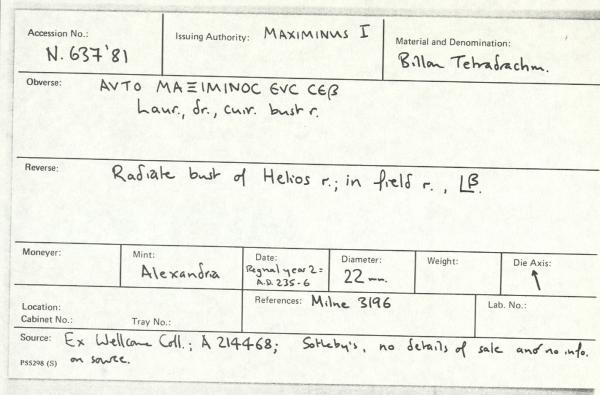 Accession No.: N. 637'81
Issuing Authority: MAXIMINUS I
Material and Denomination: Billon Tetradrachm.
Obverse: ΑVΤΟ ΜΑΞΙΜΙΝΟC ЄVC CЄβ
Laur., dr., cuir. bust r.
Reverse: Radiate bust of Helios r.; in field r., Lβ.
Moneyer:
Mint: Alexandria
Date: Regnal year 2 = A.D. 235-6
Diameter: 22 mm.
Weight:
Die Axis: ↖
Location:
Cabinet No.: Tray No.:
References: Milne 3196
Lab. No.:
Source: Ex Wellcome Coll.; A 214468; Sotheby's, no details of sale and no info.
PS5298 (S) on source.